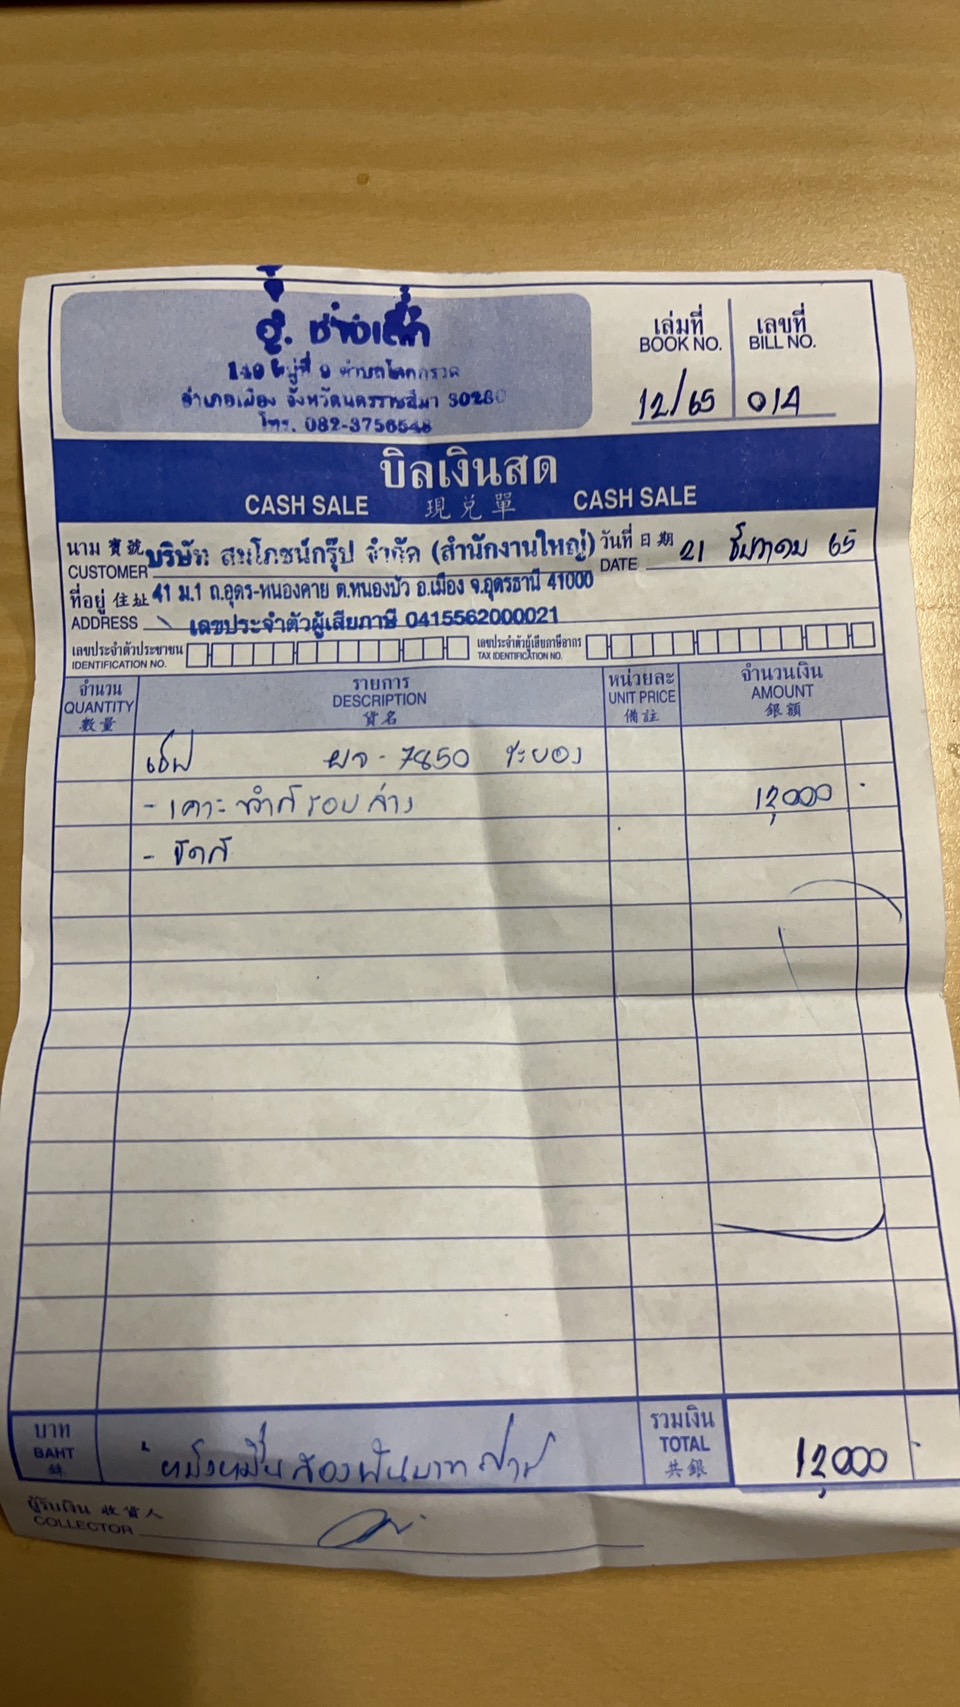 อู่. ช่างเต้า
หมู่ที่ 9 ตำบลโคกกรวด
อำเภอเมือง จังหวัดนครราชสีมา 30280
โทร. 082-3756548
เล่มที่ เลขที่
BOOK NO. BILL NO.
12/65 014
บิลเงินสด
CASH SALE 現兌單 CASH SALE
นาม 寶號 บริษัท สมโภชน์กรุ๊ป จำกัด (สำนักงานใหญ่) วันที่ 日期 21 ธันวาคม 65
CUSTOMER DATE
ที่อยู่ 住址 41 ม.1 ถ.อุดร-หนองคาย ต.หนองบัว อ.เมือง จ.อุดรธานี 41000
ADDRESS เลขประจำตัวผู้เสียภาษี 0415562000021
เลขประจำตัวประชาชน เลขประจำตัวผู้เสียภาษีอากร
IDENTIFICATION NO. TAX IDENTIFICATION NO.
จำนวน รายการ หน่วยละ จำนวนเงิน
QUANTITY DESCRIPTION UNIT PRICE AMOUNT
數量 貨名 備註 銀額
ผจ - 7850 ระยอง
- เคาะ ทำสี รอบล่าง 12,000 -
- ขัดสี
บาท หนึ่งหมื่นสองพันบาทถ้วน รวมเงิน
BAHT TOTAL 12,000 -
銖 共銀
ผู้รับเงิน 收貨人
COLLECTOR